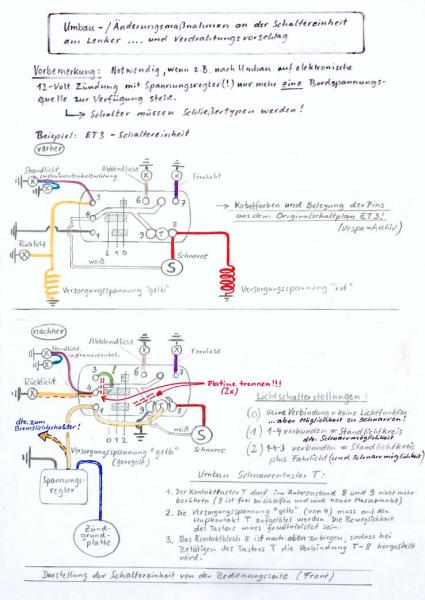 Umbau-/Änderungsmaßnahmen an der Schaltereinheit
am Lenker .... und Verdrahtungsvorschlag
Vorbemerkung: Notwendig, wenn z.B. nach Umbau auf elektronische
12-Volt Zündung mit Spannungsregler(!) nur mehr eine Bordspannungs-
quelle zur Verfügung steht.
↳ Schalter müssen Schließertypen werden!
Beispiel: ET3 - Schaltereinheit
vorher
Standlicht
Instrumentenbeleuchtung
Abblendlicht
Fernlicht
3
6
7
4
1
9
T
8
2 1 0
Rücklicht
weiß
S
Schnarre
→ Kabelfarben und Belegung der Pins
aus dem Originalschaltplan ET3!
(Vespa-Archiv)
Versorgungsspannung "gelb"
Versorgungsspannung "rot"
nachher
Standlicht
Instrumentenbel.
Abblendlicht
Fernlicht
3
6
7
Rücklicht
4
1
9
8
Platine trennen!!!
(2x)
0 1 2
weiß
S
Schnarre
dto. zum
Bremslichtschalter!
Versorgungsspannung "gelb"
(geregelt)
Spannungs-
regler
Zünd-
grund-
platte
Lichtschalterstellungen:
(0) keine Verbindung = keine Lichtfunktion
...aber Möglichkeit zu Schnarren!
(1) 1-4 verbunden = Standlichtkreis
dto. Schnarrmöglichkeit
(2) 1-4-3 verbunden = Standlichtkreis
plus Fahrlicht (und Schnarrmöglichkeit)
Umbau Schnarrentaster T:
1. Der Kontakttaster T darf im Ruhezustand 8 und 9 nicht mehr
berühren (9 ist frei und
2. Die Versorgungsspannung "gelb" (von 4) muss an den
Hupkontakt T aufgelötet werden. Die Beweglichkeit
des Tasters muss gewährleistet sein.
3. Das Kontaktblech 8 ist nach oben zu biegen, sodass bei
Betätigen des Tasters T die Verbindung T-8 hergestellt
wird.
Darstellung der Schaltereinheit von der Bedienungsseite (Front)